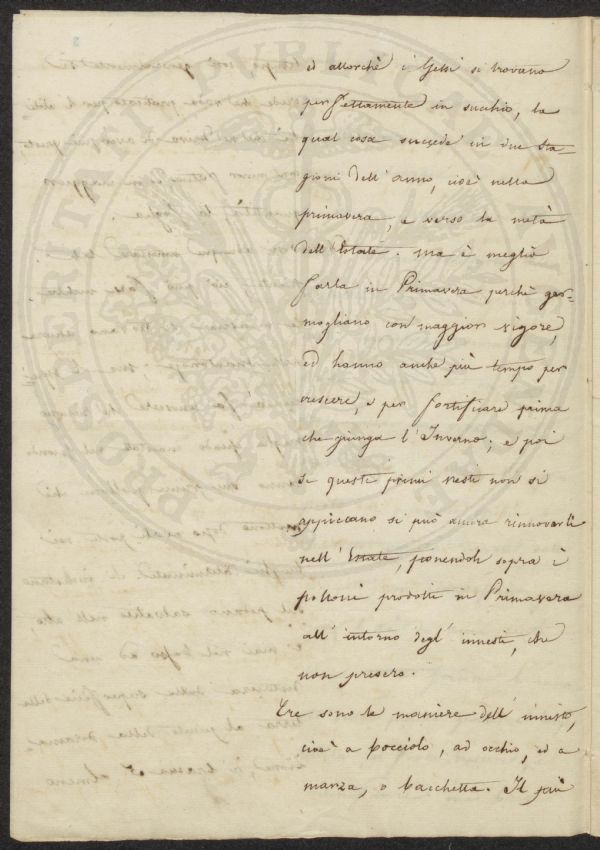 ed allorchè i Gelsi si trovano
perfettamente in succhio, la
qual cosa succede in due sta-
gioni dell' anno, cioè nella
primavera, e verso la metà
dell' Estate. ma è meglio
farla in Primavera perchè ger-
mogliano con maggior vigore,
ed hanno anche più tempo per
crescere, e per fortificare prima
che giunga l' Inverno; e poi
se questi primi nesti non si
appiccano si può ancora rinnovarli
nell' Estate, ponendoli sopra i
polloni prodotti in Primavera
all' intorno degl' innesti, che
non presero.
Tre sono le maniere dell' innesto,
cioè a bocciolo, ad occhio, ed a
marza, o bacchetta. Il più